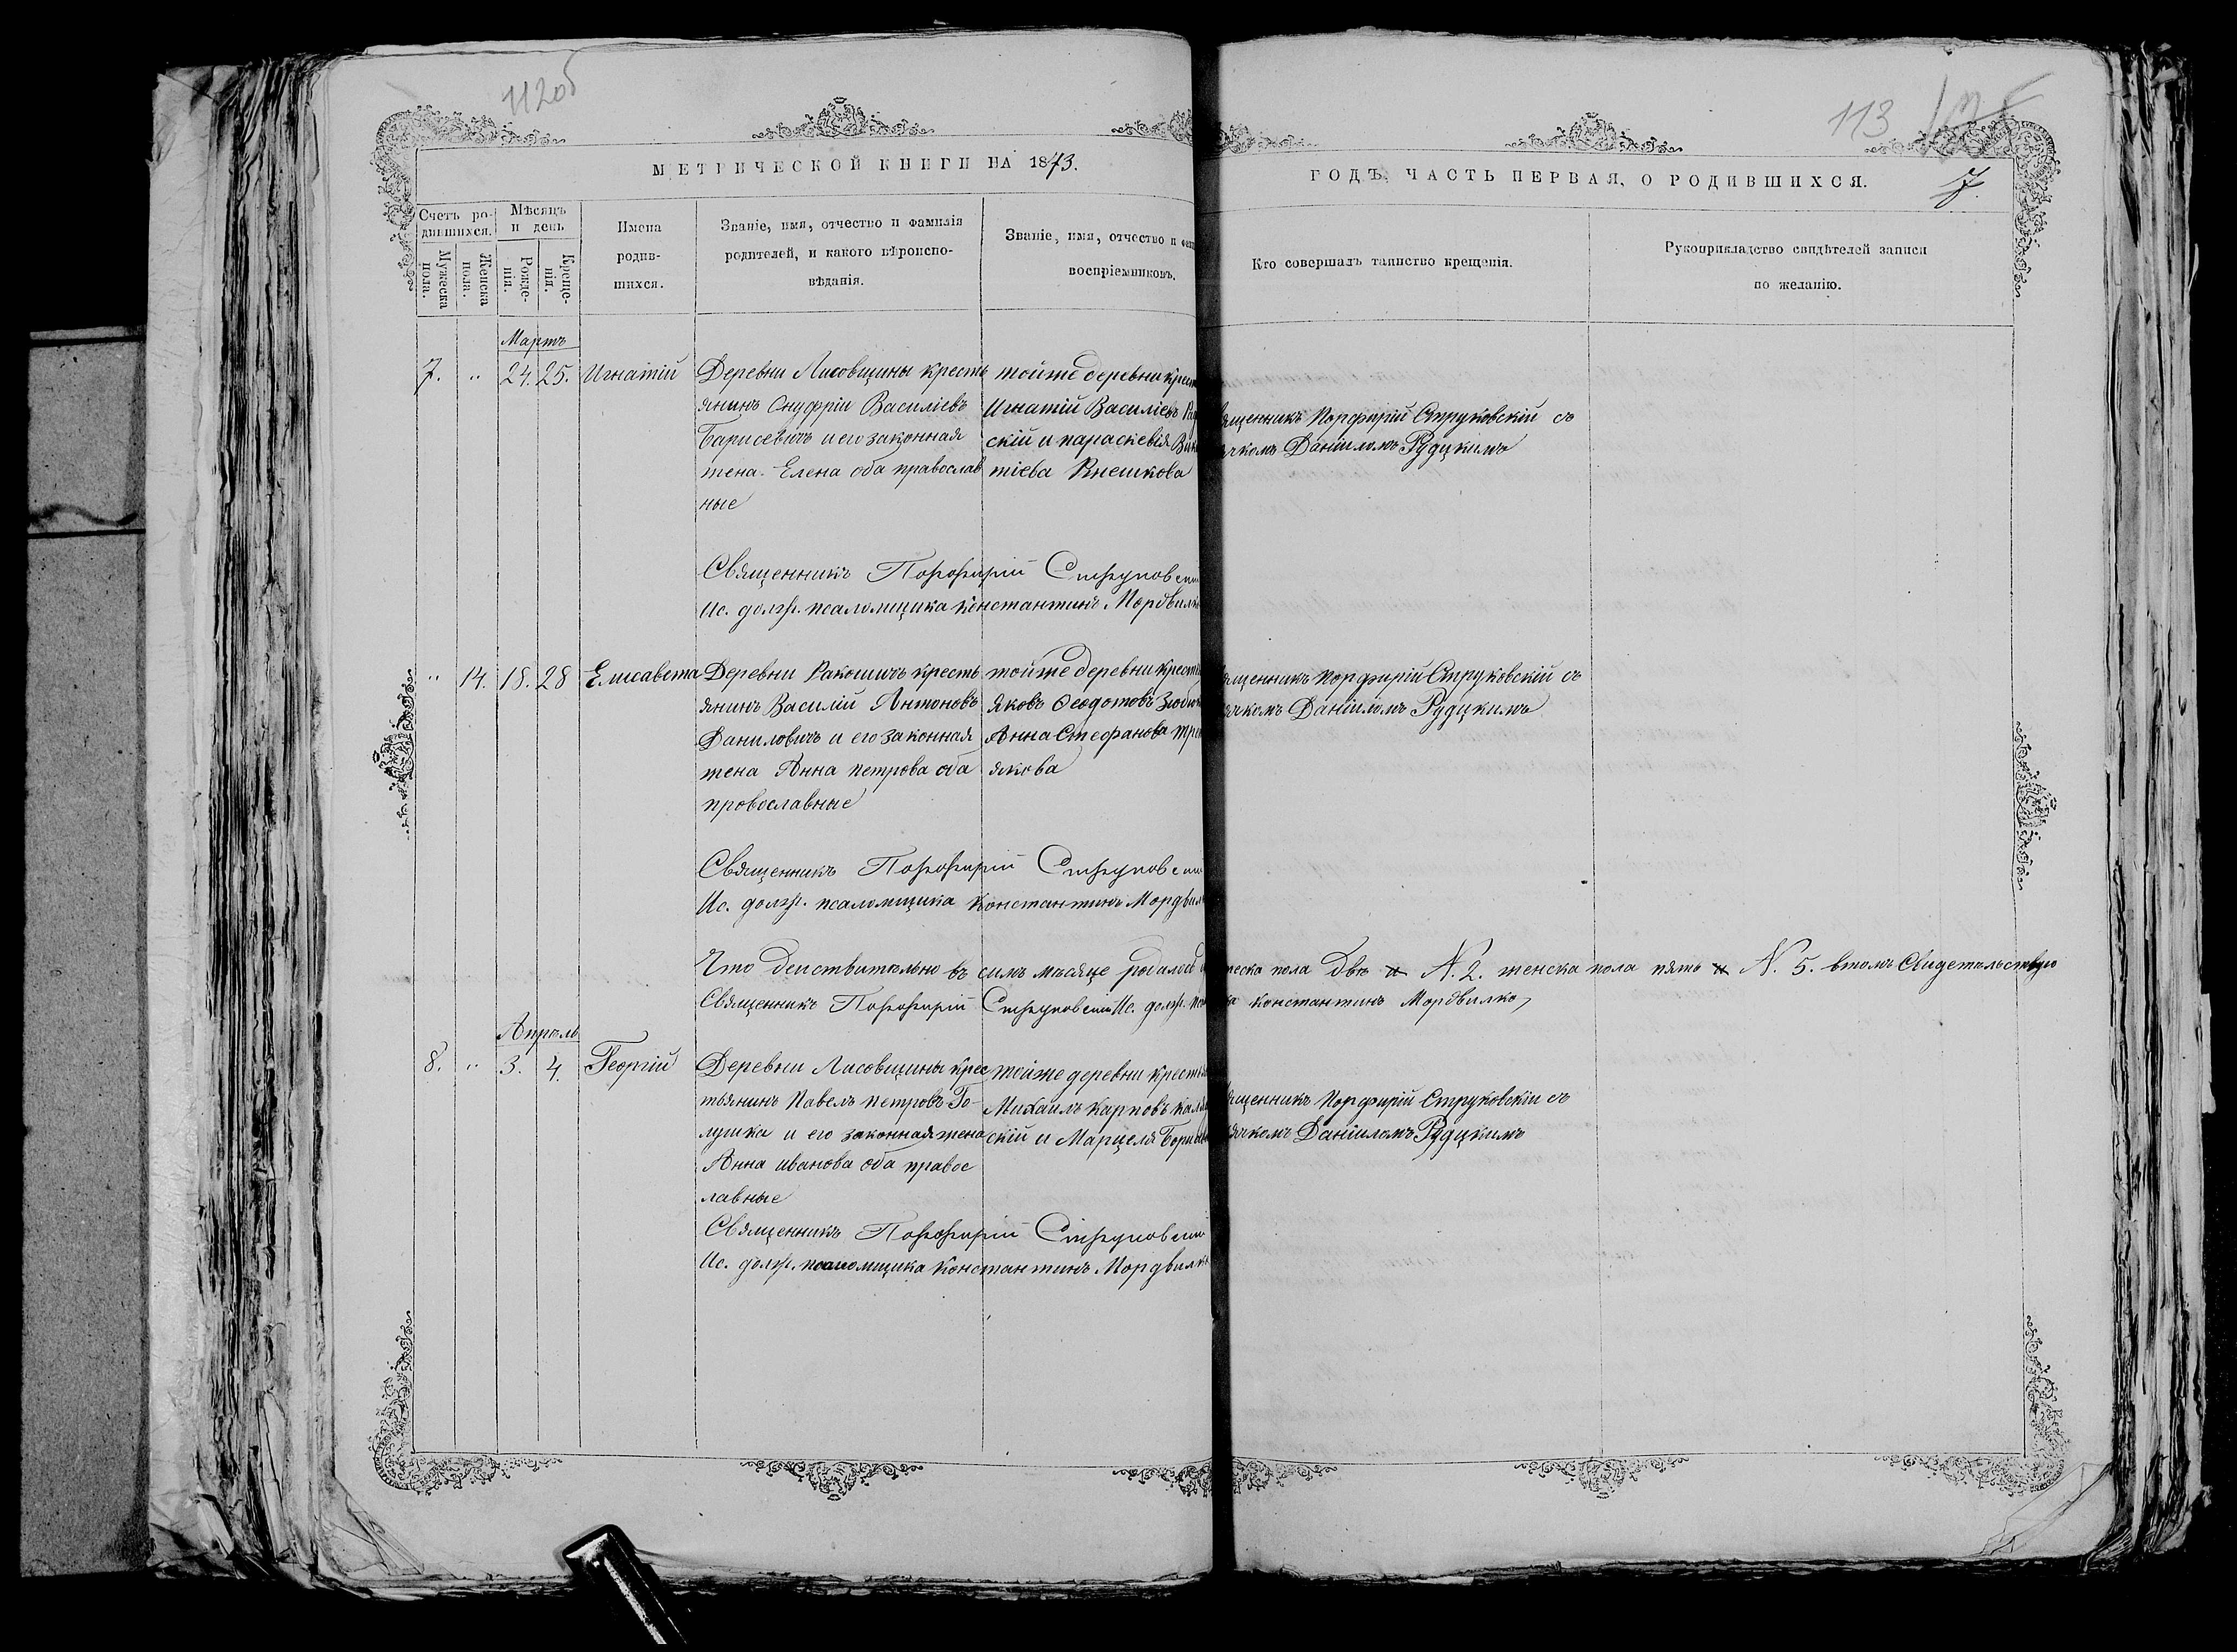 112об
113
МЕТРИЧЕСКОЙ КНИГИ НА 1873.
ГОДЪ, ЧАСТЬ ПЕРВАЯ, О РОДИВШИХСЯ.
7.
Счетъ ро-
дившихся.
Мужеска
пола.
Женска
пола.
Мѣсяцъ
и день
Рожде-
нія.
Креще-
нія.
Имена
родив-
шихся.
Званіе, имя, отчество и фамилія
родителей, и какого вѣроиспо-
вѣданія.
Званіе, имя, отчество и
воспріемниковъ.
Кто совершалъ таинство крещенія.
Рукоприкладство свидѣтелей записи
по желанію.
Мартъ
7. " 24. 25. Игнатій
Деревни Лисовщины кресть
янинъ Онуфрій Василіевъ
Барисевичъ и его законная
жена Елена оба православ
ные
тойже деревни крест
Игнатій Василіевъ
скій и параскевія
тіева Кнешкова
ященникъ Порфирій Струковскій съ
ячкомъ Даніиломъ Рудцкимъ
Священникъ Порфирій Струковскі
Ис. долж. псаломщика константинъ Мордвилк
" 14. 18. 28 Елисавета
Деревни Ракошичъ кресть
янинъ Василій Антоновъ
Даниловичъ и его законная
жена Анна петрова оба
провославные
тойже деревни крест
яковъ Ѳеодотовъ
Анна Стефанова
якова
ященникъ порфирій Струковскій съ
ячкомъ Даніиломъ Рудцкимъ
Священникъ Порфирій Струковскі
Ис. долж. псаломщика Константинъ Мордвил
Что деиствительно въ симъ мѣсяце родилось жеска пола двѣ и N. 2. женска пола пять и N. 5. втомъ Свидетельствую
Священникъ Порфирій Струковскій Ис. долж. ка константинъ Мордвилко
Апрѣль
8. " 3. 4. Георгій
Деревни Лисовщины крес
тьянинъ Павелъ петровъ Го-
лушка и его законная жена
Анна иванова оба правос
лавные
тойже деревни кресть
Михаилъ Карповъ
скій и Марцеля
ященникъ Порфирій Струковскій съ
ячкомъ Даніиломъ Рудцкимъ
Священникъ Порфирій Струковскі
Ис. долж. псаломщика Константинъ Мордвилк